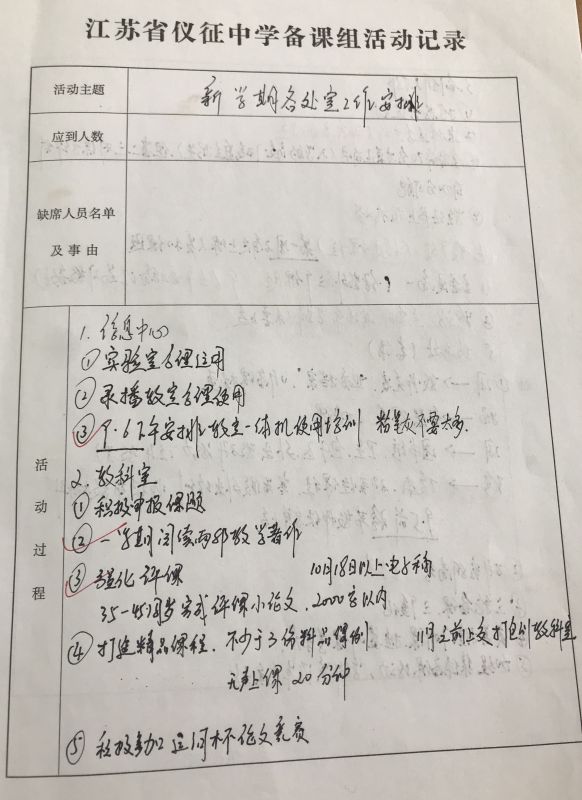 江苏省仪征中学备课组活动记录
活动主题
新学期各处室工作安排
应到人数
缺席人员名单
及事由
活动过程
1. 信息中心
① 实验室合理运用
② 录播教室合理使用
③ 9.6下午安排教室一体机使用培训 粉笔灰不要太多.
2. 教科室
① 积极申报课题
② 一学期阅读两部教学著作
③ 强化评课 10月18日以上电子稿
35-45周岁 完成评课小论文, 2000字以内
④ 打造精品课程. 不少于3份精品课例 11月之前上交打包到教科室
无声上课 20分钟
⑤ 积极参加 杯论文竞赛